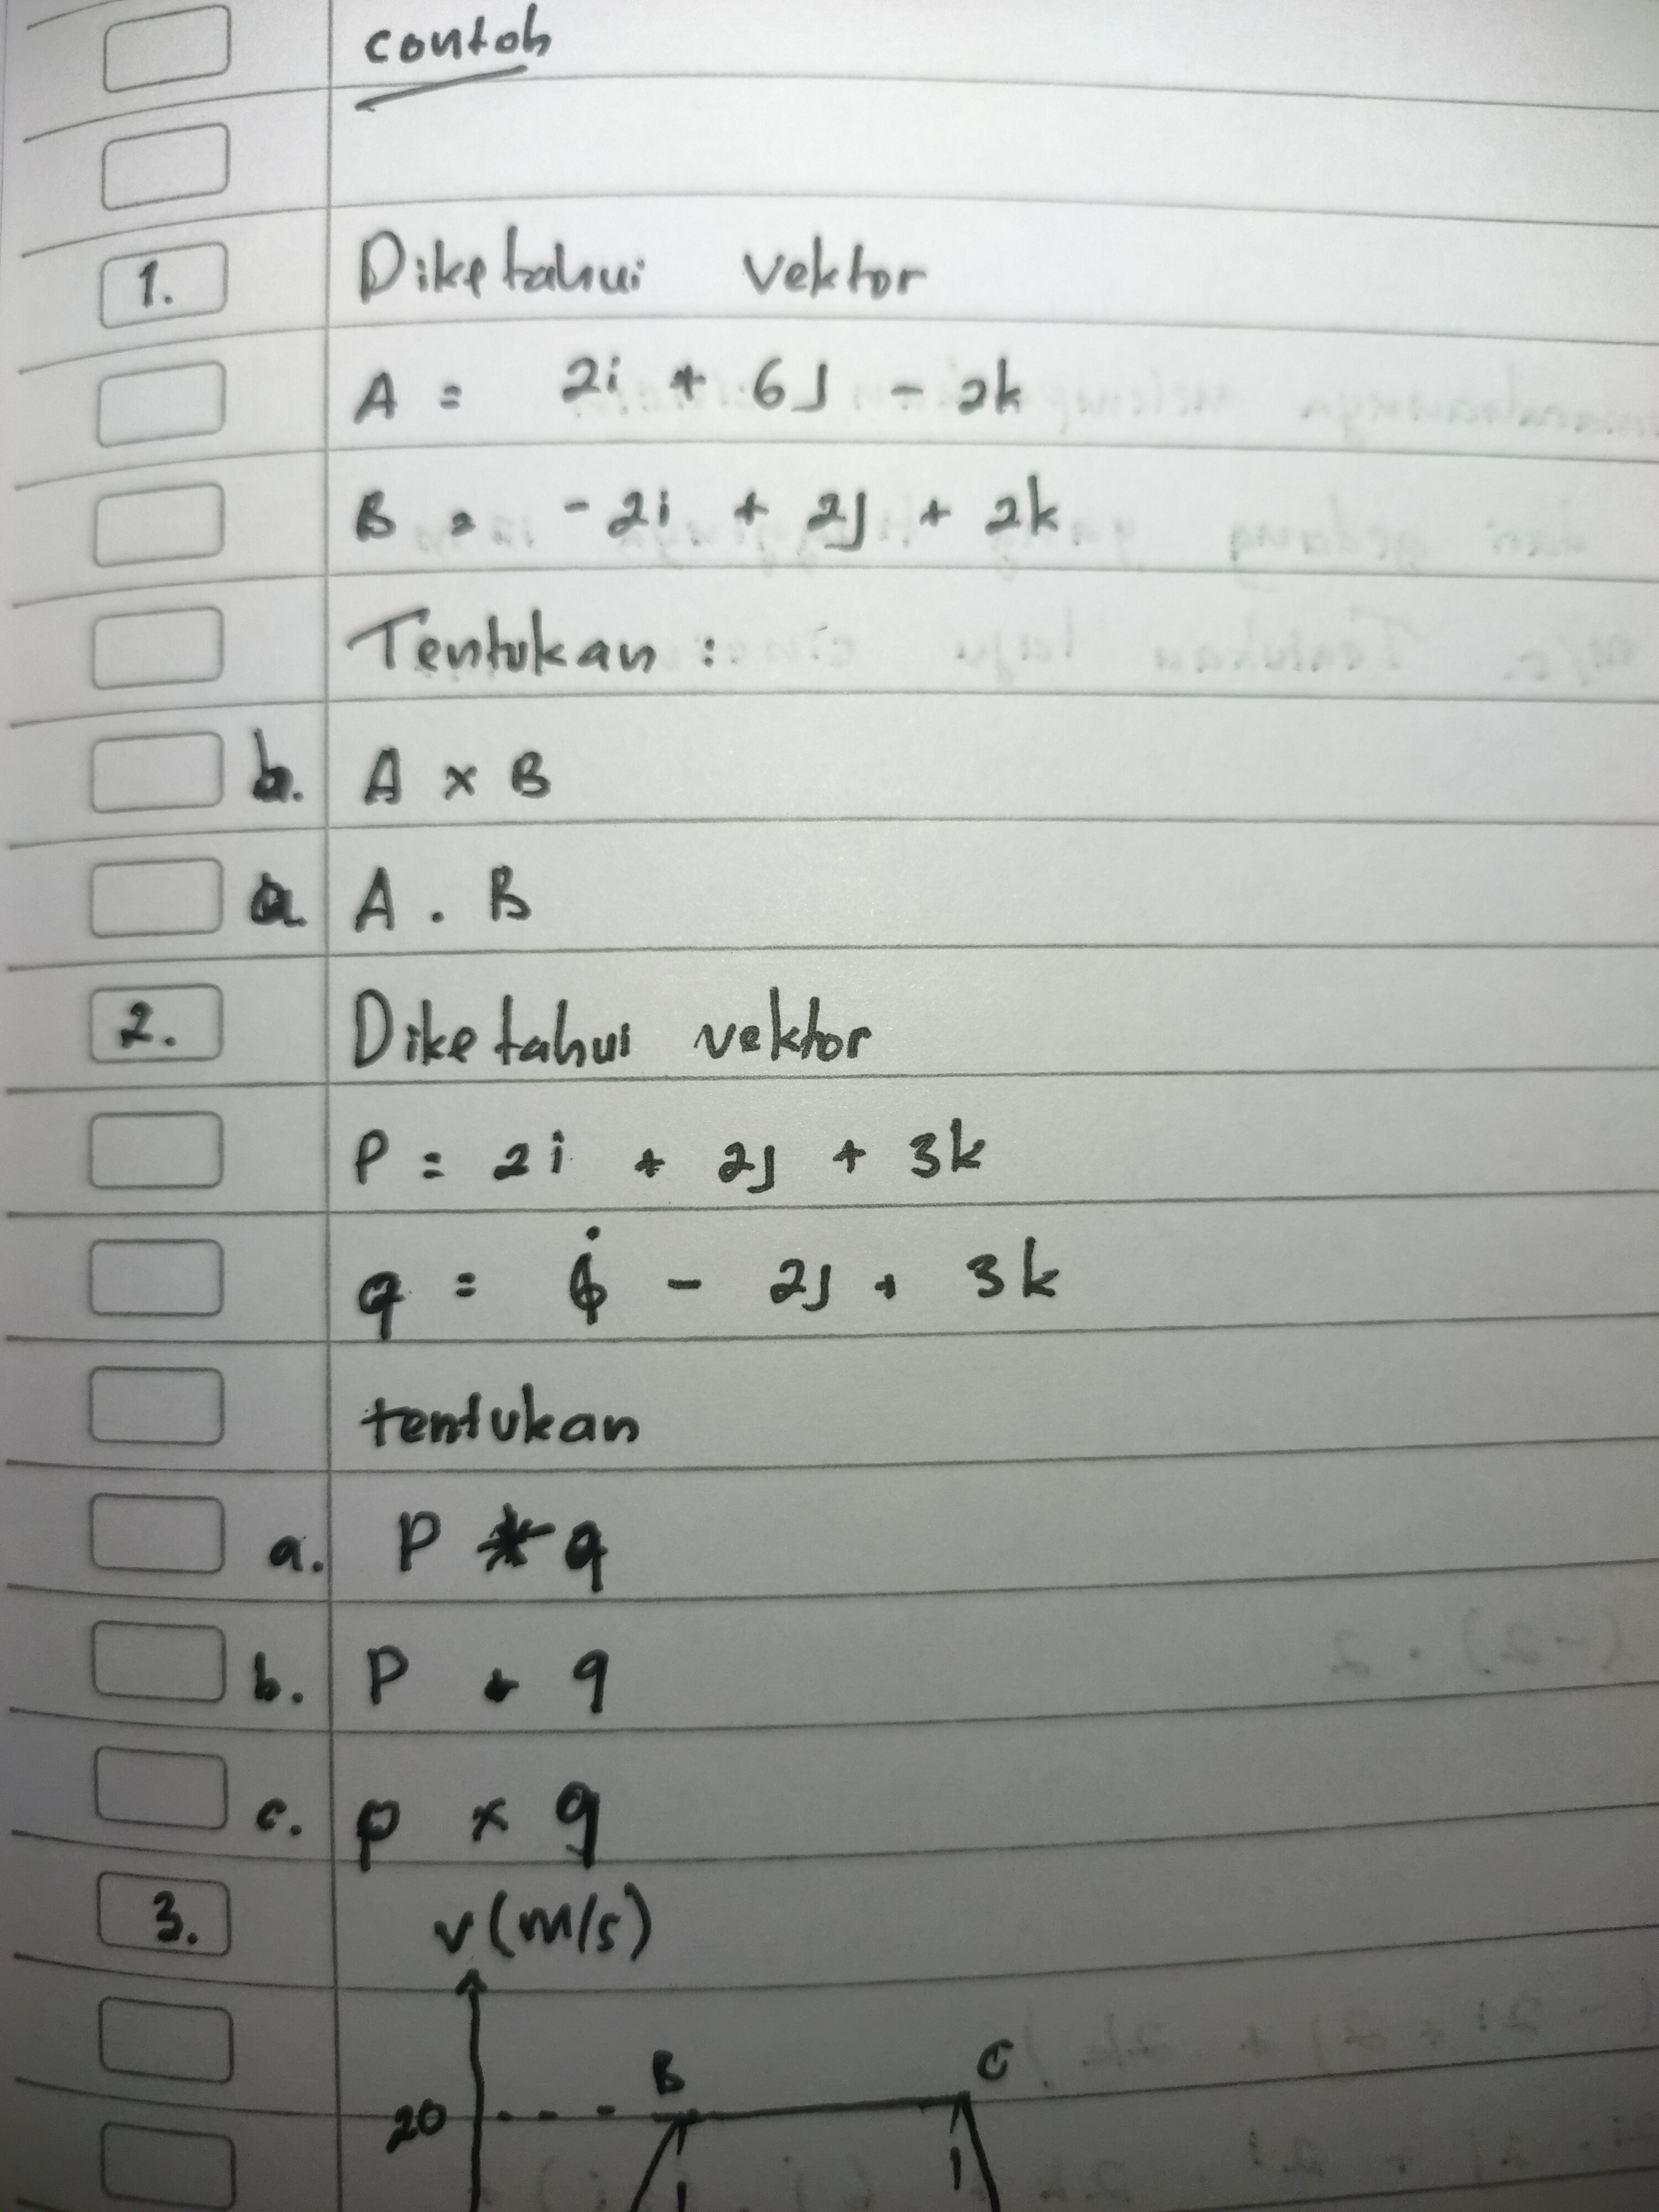 contoh
1. Diketahui vektor
A = 2i + 6j - 2k
B = -2i + 2j + 2k
Tentukan :
b. A x B
a. A . B
2. Diketahui vektor
P = 2i + 2j + 3k
q = i - 2j + 3k
tentukan
a. P * q
b. P + q
c. p x q
3. v (m/s)
B C
20